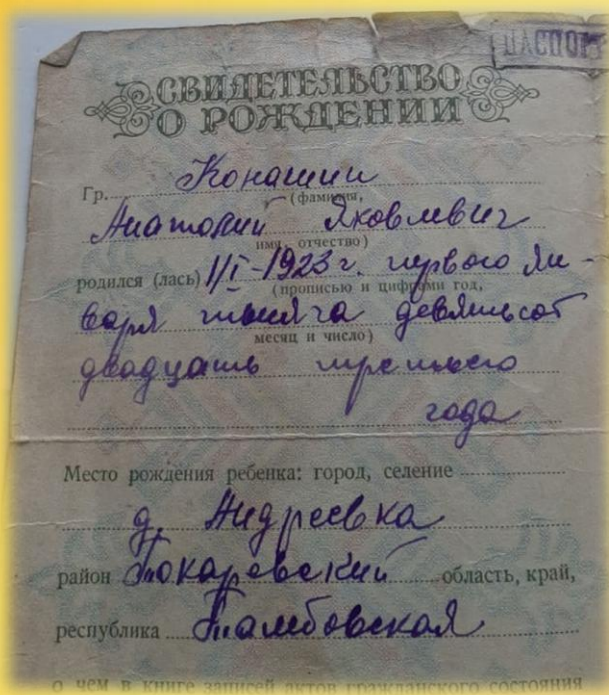 ПАСПОРТ
СВИДЕТЕЛЬСТВО
О РОЖДЕНИИ
Гр. Конашин
(фамилия,
Анатолий Яковлевич
имя, отчество)
родился (лась) 1/I-1923 г. первого ян-
(прописью и цифрами год,
варя тысяча девятьсот
месяц и число)
двадцать третьего
года
Место рождения ребенка: город, селение
д. Андреевка
район Токаревский область, край,
республика Тамбовская
о чем в книге записей актов гражданского состояния